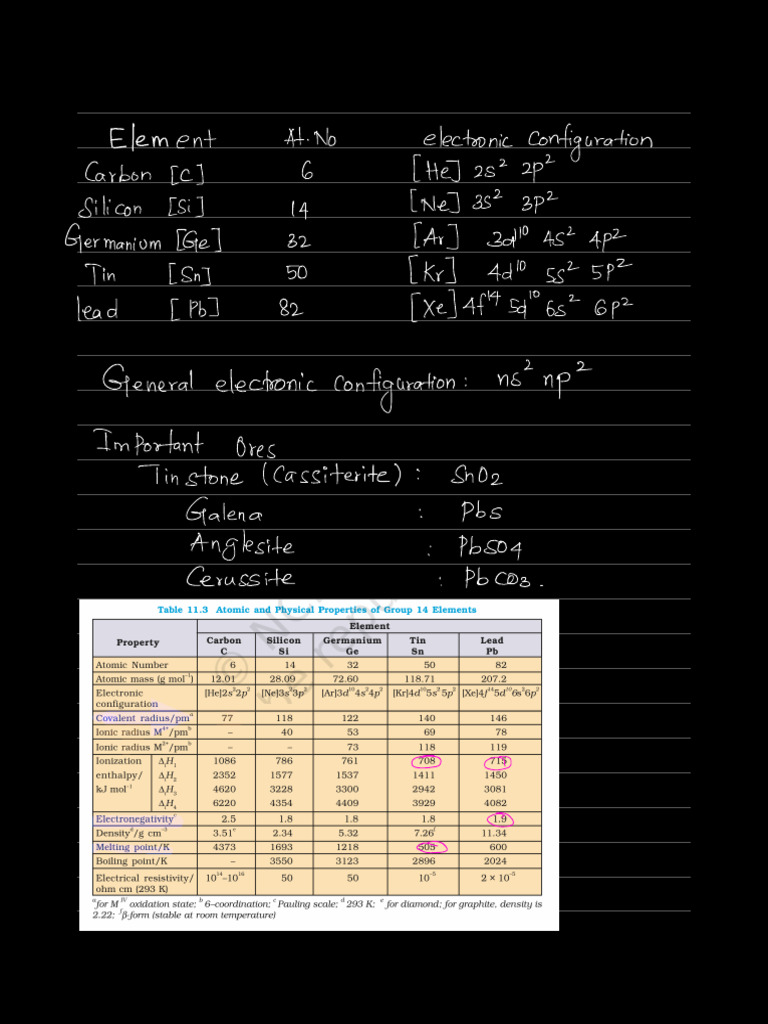 Element At. No electronic Configuration
Carbon [C] 6 [He] 2s² 2p²
Silicon [Si] 14 [Ne] 3s² 3p²
Germanium [Ge] 32 [Ar] 3d¹⁰ 4s² 4p²
Tin [Sn] 50 [Kr] 4d¹⁰ 5s² 5p²
lead [Pb] 82 [Xe] 4f¹⁴ 5d¹⁰ 6s² 6p²
General electronic configuration: ns² np²
Important Ores
Tin stone (Cassiterite) : SnO2
Galena : Pbs
Anglesite : PbSO4
Cerussite : PbCO3.
Table 11.3 Atomic and Physical Properties of Group 14 Elements
Element
Property Carbon Silicon Germanium Tin Lead
C Si Ge Sn Pb
Atomic Number 6 14 32 50 82
Atomic mass (g mol⁻¹) 12.01 28.09 72.60 118.71 207.2
Electronic [He]2s²2p² [Ne]3s²3p² [Ar]3d¹⁰4s²4p² [Kr]4d¹⁰5s²5p² [Xe]4f¹⁴5d¹⁰6s²6p²
configuration
Covalent radius/pmᵃ 77 118 122 140 146
Ionic radius M⁴⁺/pmᵇ – 40 53 69 78
Ionic radius M²⁺/pmᵇ – – 73 118 119
Ionization ΔᵢH₁ 1086 786 761 708 715
enthalpy/ ΔᵢH₂ 2352 1577 1537 1411 1450
kJ mol⁻¹ ΔᵢH₃ 4620 3228 3300 2942 3081
ΔᵢH₄ 6220 4354 4409 3929 4082
Electronegativityᶜ 2.5 1.8 1.8 1.8 1.9
Densityᵈ/g cm⁻³ 3.51ᵉ 2.34 5.32 7.26ᶠ 11.34
Melting point/K 4373 1693 1218 505 600
Boiling point/K – 3550 3123 2896 2024
Electrical resistivity/ 10¹⁴–10¹⁶ 50 50 10⁻⁵ 2 × 10⁻⁵
ohm cm (293 K)
ᵃfor Mᴵⱽ oxidation state; ᵇ 6–coordination; ᶜ Pauling scale; ᵈ 293 K; ᵉ for diamond; for graphite, density is
2.22; ᶠβ-form (stable at room temperature)